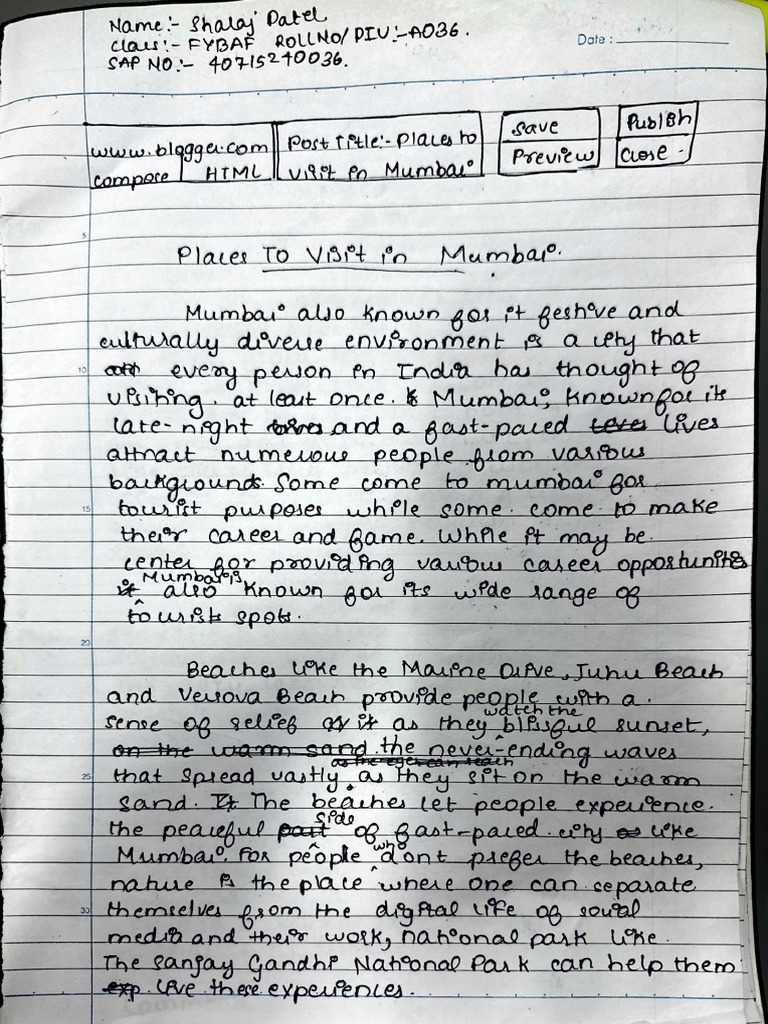 Name:- Shalaj Patel
Class:- FYBAF ROLL NO/DIV:-A036.
SAP NO:- 40715240036.
Date :
www.blogger.com
compose HTML
Post Title:- Places to
visit in Mumbai
Save
Preview
Publish
Close.
Places To Visit in Mumbai.
5
Mumbai also known for it festive and
culturally diverse environment is a city that
10 every person in India has thought of
visiting. at least once. Mumbai, known for its
late-night and a fast-paced lives
attract numerous people from various
backgrounds. Some come to mumbai for
15 tourist purposes while some come to make
their career and fame. While it may be
center for providing various career opportunities
Mumbai is also known for its wide range of
tourists spots.
20
Beaches like the Marine Drive, Juhu Beach
and Versova Beach provide people with a
sense of relief as they watch the blissful sunset,
the never-ending waves
25 that spread vastly as they sit on the warm
sand. The beaches let people experience
the peaceful side of fast-paced city like
Mumbai. For people who dont prefer the beaches,
nature is the place where one can separate
30 themselves from the digital life of social
media and their work, national park like
The Sanjay Gandhi National Park can help them
live these experiences.